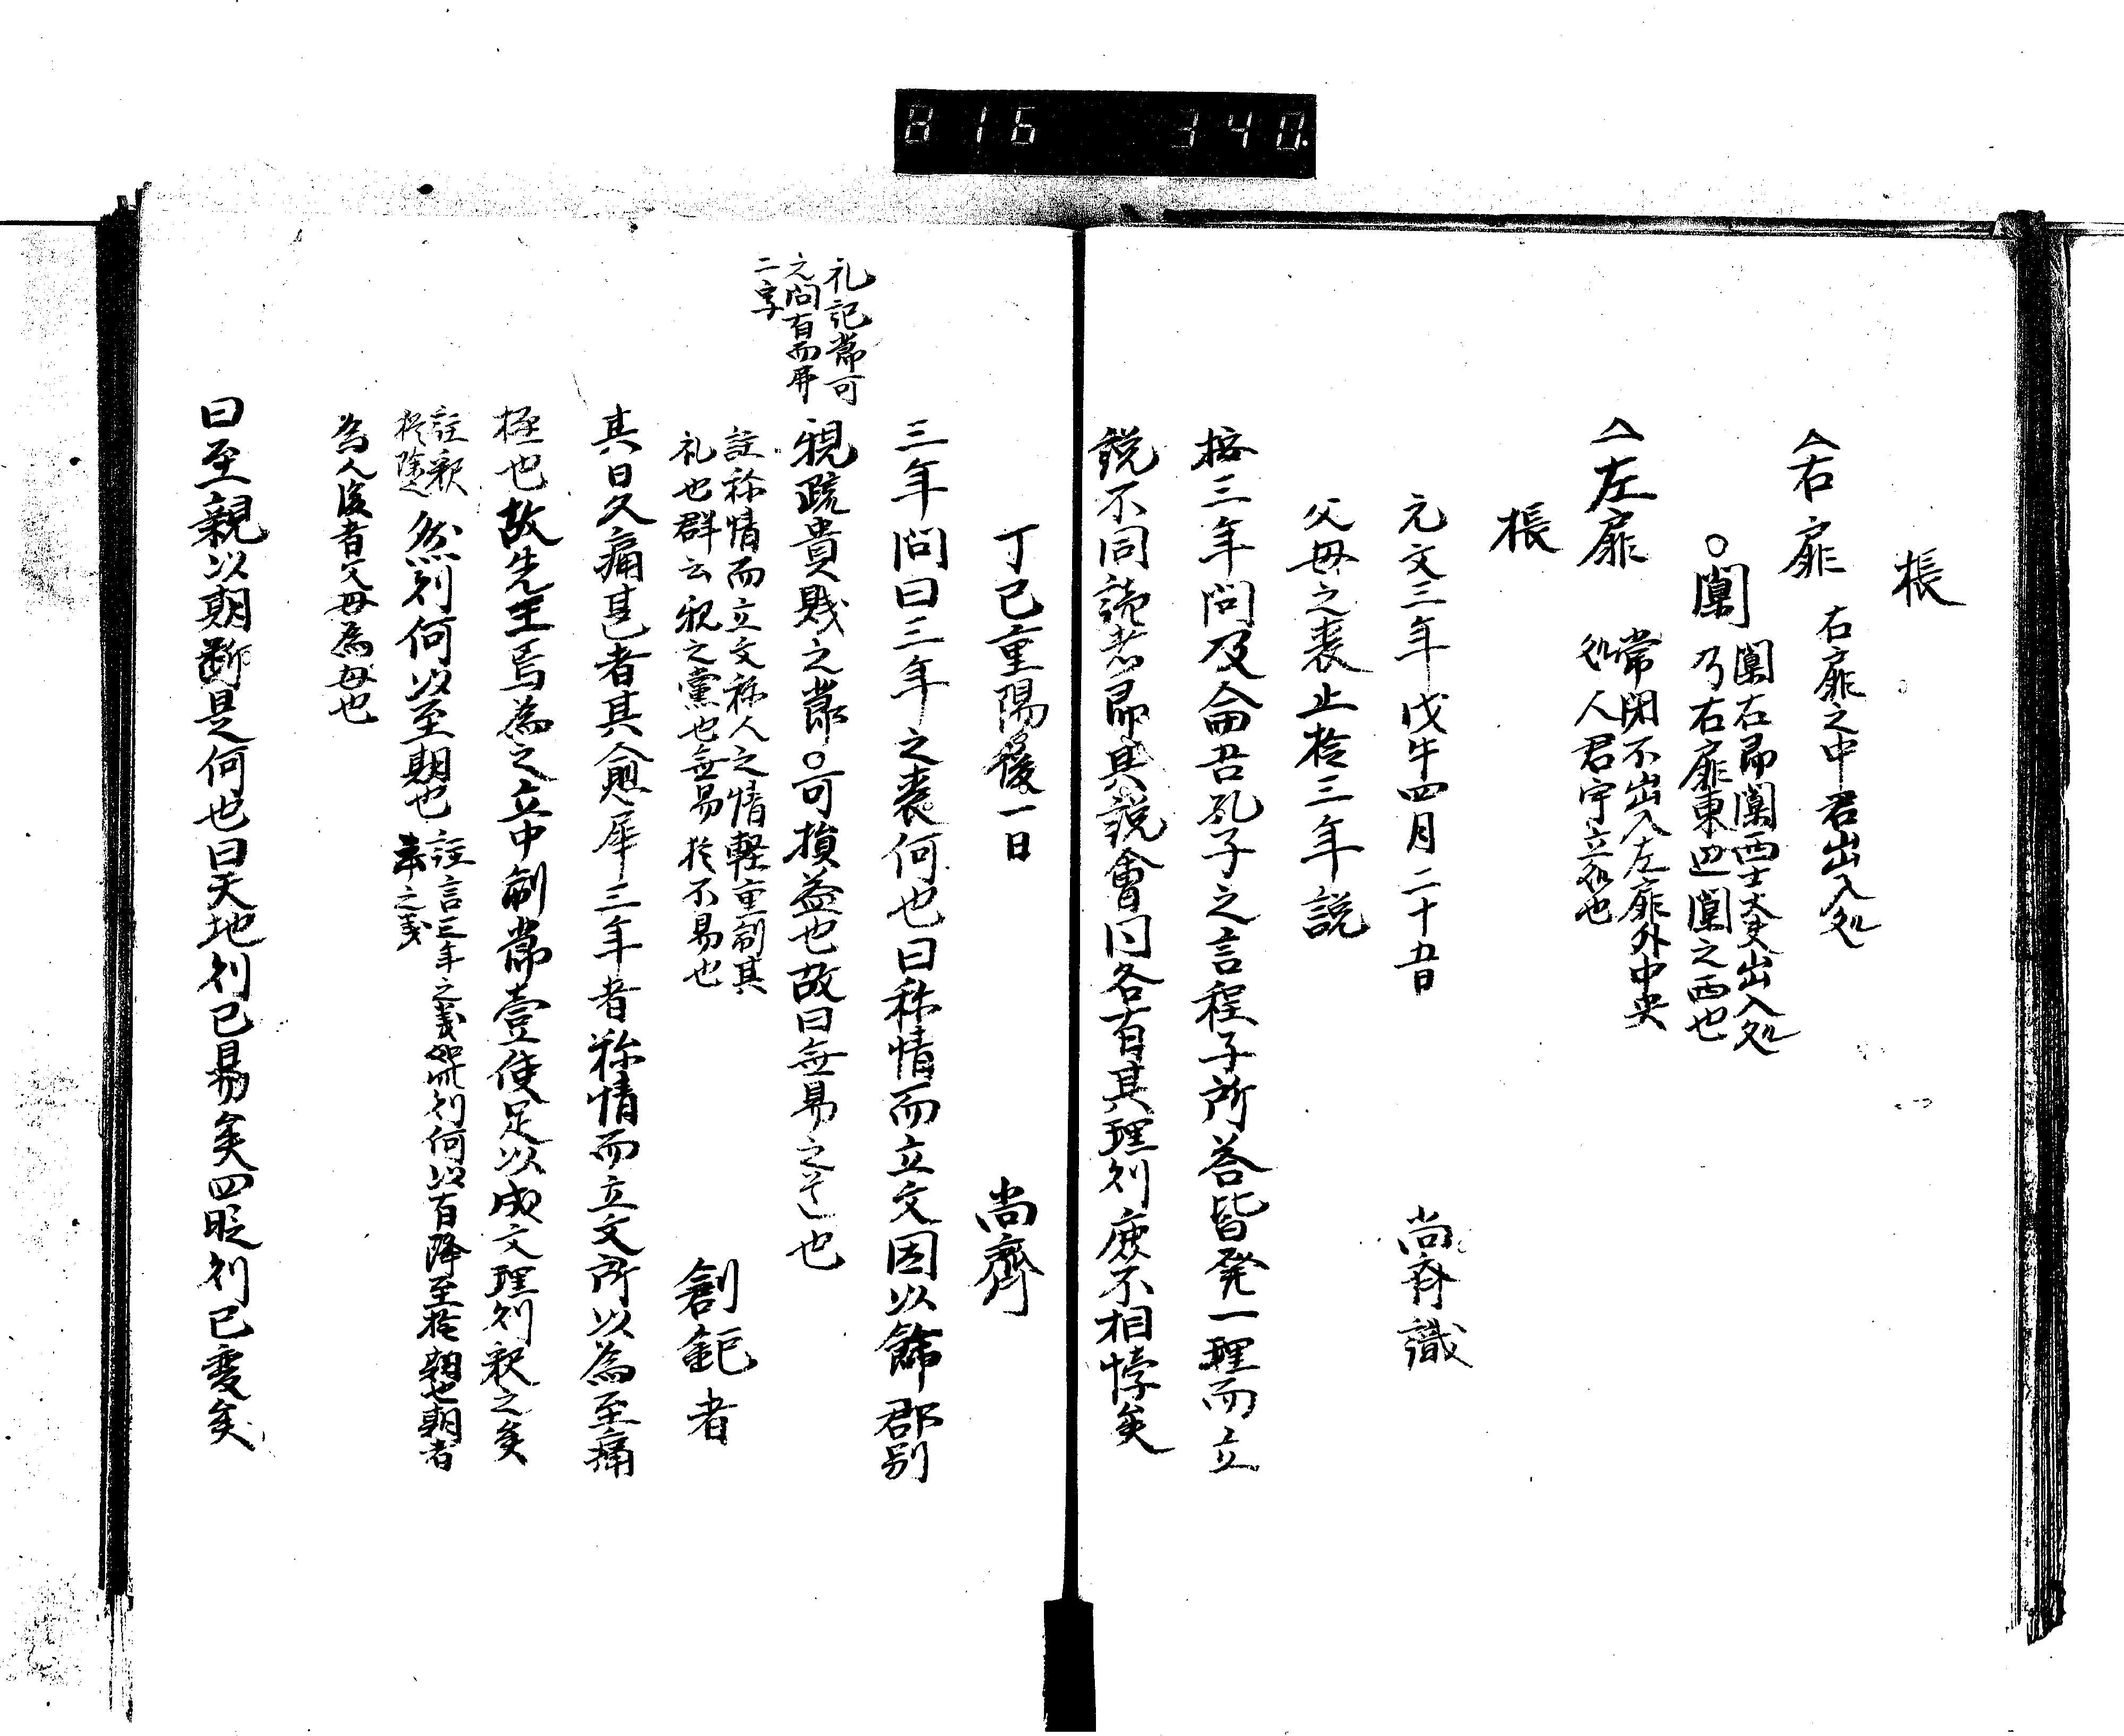 816 340.
棖
᐀右扉
右扉之中君出入処
○闑
闑右即闑西士大夫出入処
乃右扉東辺闑之西也
左扉
常閉不出入左扉外中央
処人君宁立処也
棖
元文三年戊午四月二十五日 尚斎識
父母之喪止於三年説
按三年問及侖吾孔子之言程子所答皆発一理而立
説不同読者即其説會同各有其理則庶不相悖矣
丁巳重陽後一日 尚齋
三年問曰三年之喪何也曰称情而立文因以餙郡别
礼記常可
之間有而弗
二字
親疏貴賎之常○可損益也故曰無易之道也
註称情而立文称人之情輕重制其
礼也群云親之黨也無易於不易也
創鉅者
其日久痛甚者其愈犀三年者称情而立文所以為至痛
極也故先王焉為之立中制常壹使足以成文理則釈之矣
註釈
於除之
然則何以至期也
註言三年之義如此則何以有降至於期也期者
為人後者父母為母也
曰至親以期断是何也曰天地則已易矣四时則已变矣